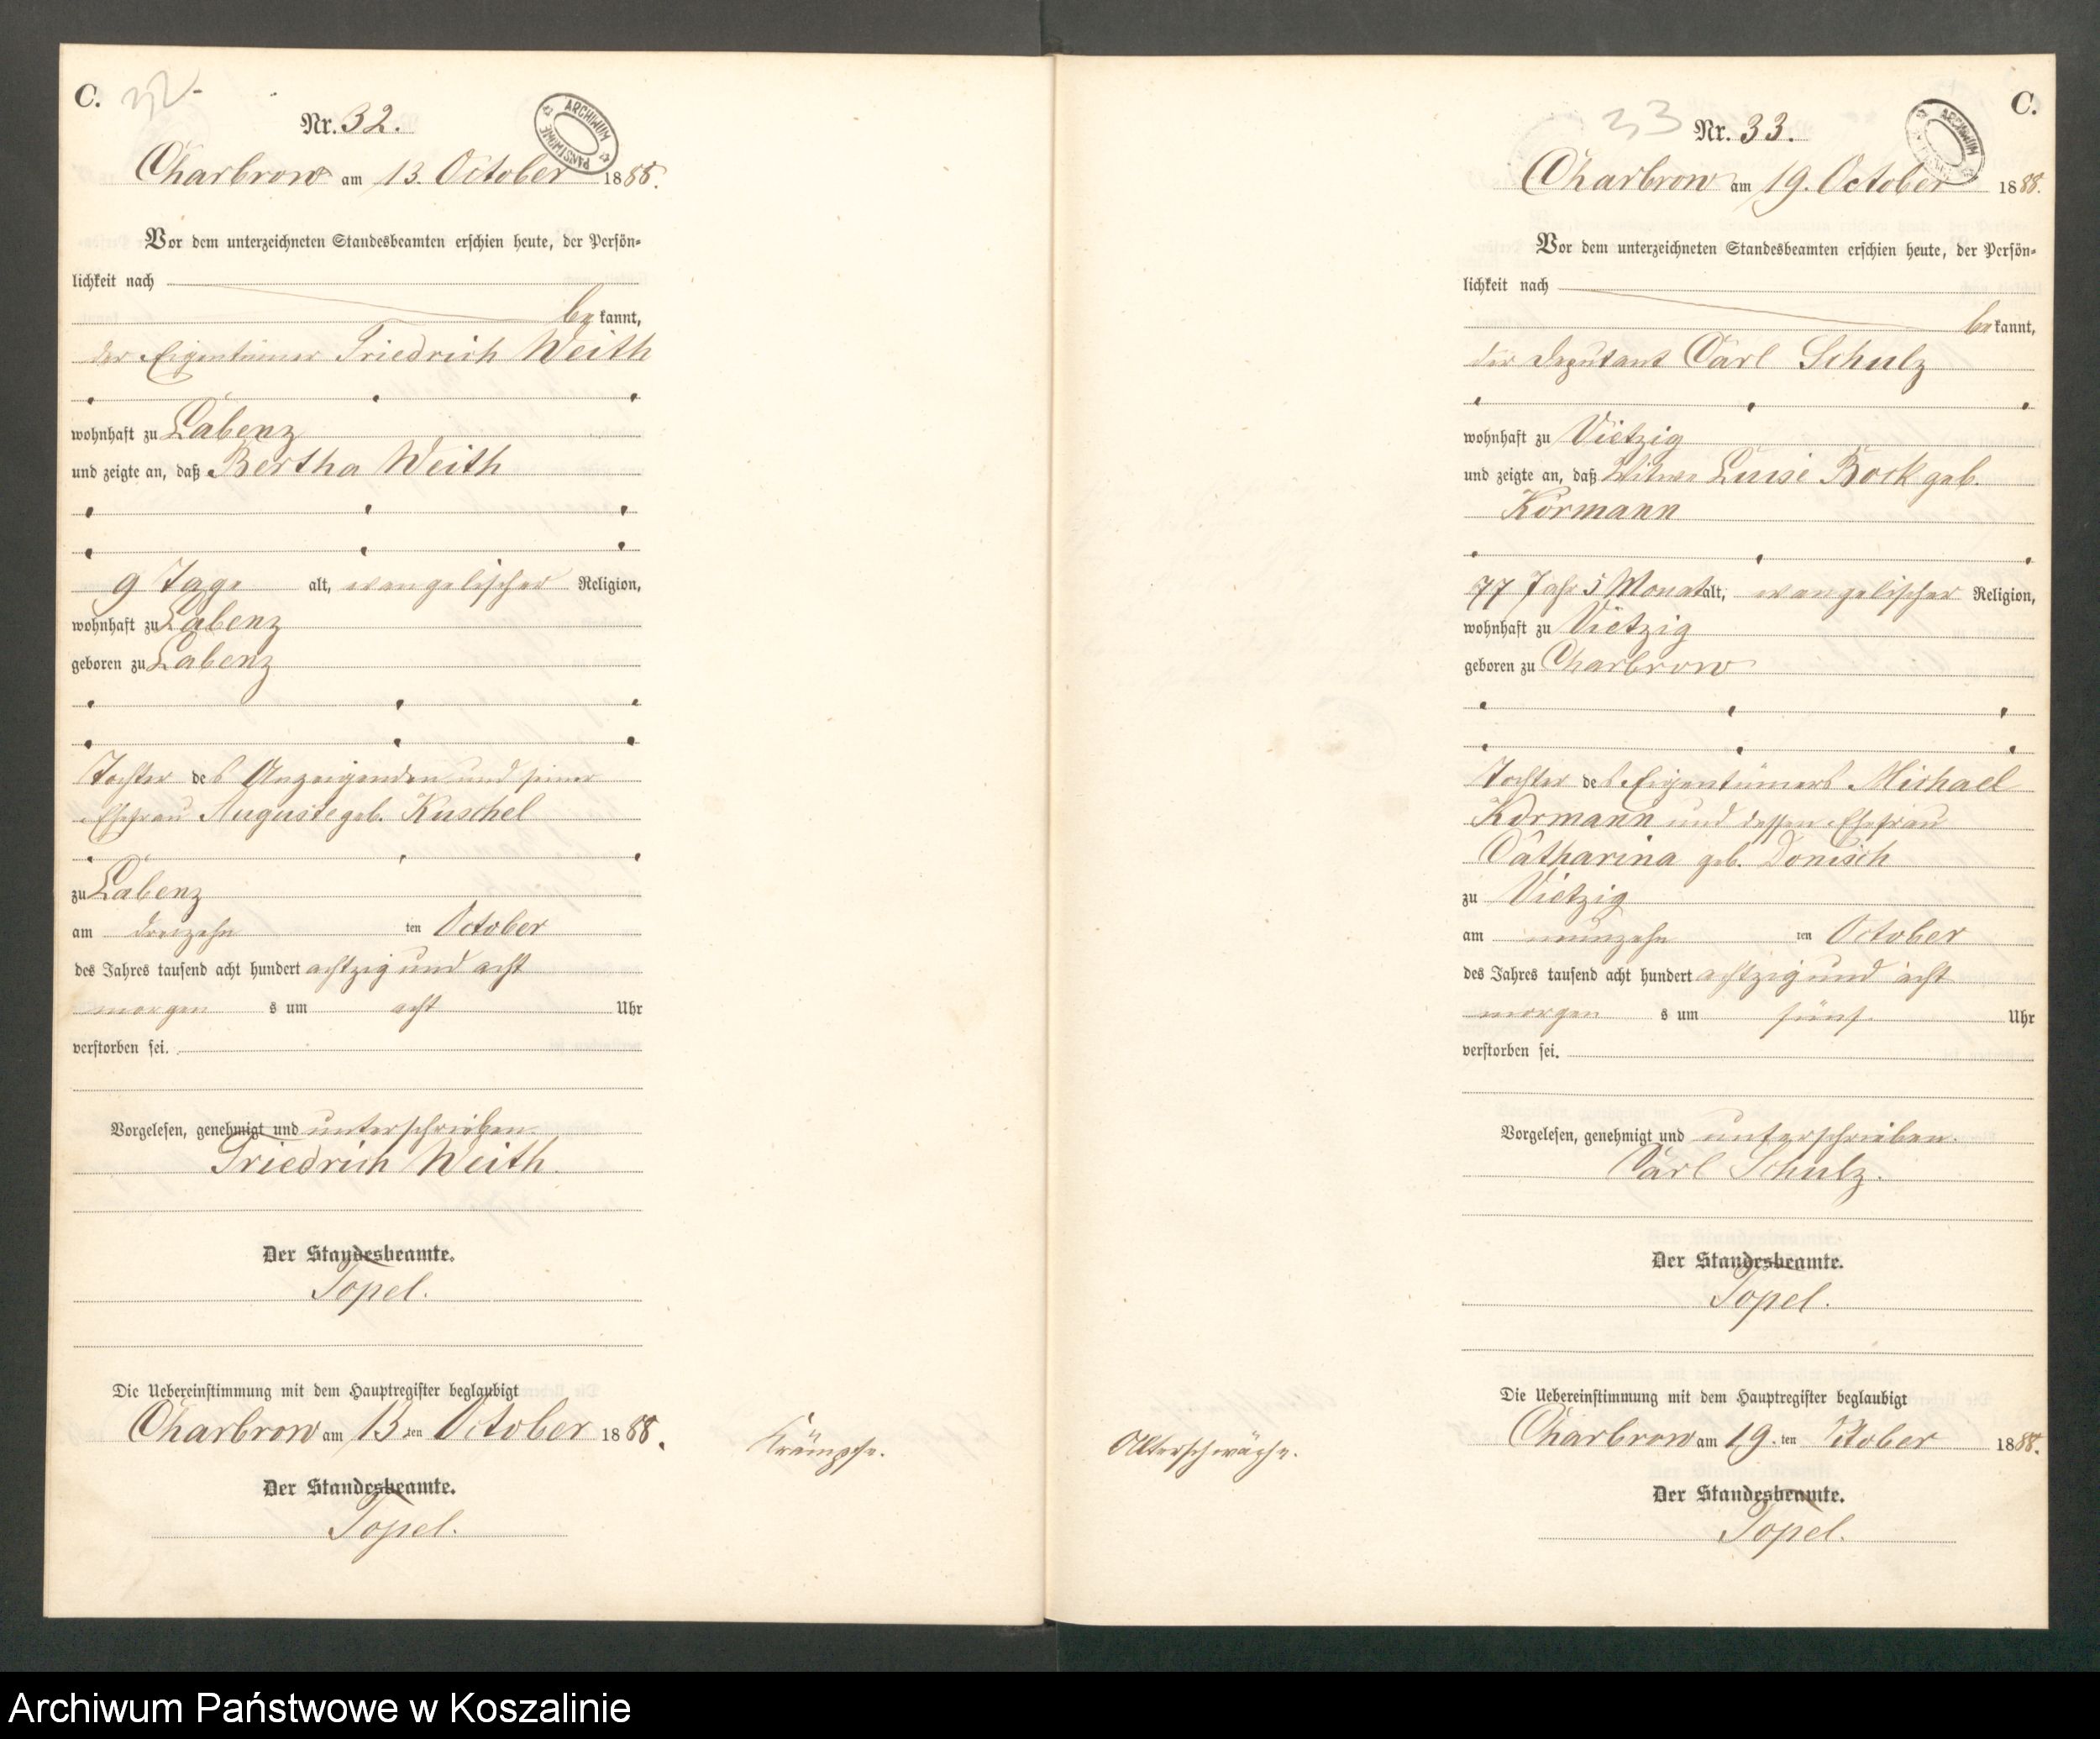 C. 32
Nr. 32.
ARCHIWUM PAŃSTWOWE
Charbrow am 13. October 1888.
Vor dem unterzeichneten Standesbeamten erschien heute, der Persön-
lichkeit nach
bekannt,
der Eigentümer Friedrich Weith
wohnhaft zu Labenz
und zeigte an, daß Bertha Weith
9 Tage alt, evangelischer Religion,
wohnhaft zu Labenz
geboren zu Labenz
Tochter des Anzeigenden und seiner
Ehefrau Auguste geb. Kuschel
zu Labenz
am dreizehn ten October
des Jahres tausend acht hundert achtzig und acht
morgen s um acht Uhr
verstorben sei.
Vorgelesen, genehmigt und unterschrieben
Friedrich Weith.
Der Standesbeamte.
Topel.
Die Uebereinstimmung mit dem Hauptregister beglaubigt
Charbrow am 13 ten October 1888.
Der Standesbeamte.
Topel.
Krämpfe.
C.
33
Nr. 33.
ARCHIWUM
Charbrow am 19. October 1888.
Vor dem unterzeichneten Standesbeamten erschien heute, der Persön-
lichkeit nach
bekannt,
der Deputant Carl Schulz
wohnhaft zu Vietzig
und zeigte an, daß Witwe Luise Bock geb.
Körmann
77 Jahr 5 Monat alt, evangelischer Religion,
wohnhaft zu Vietzig
geboren zu Charbrow
Tochter des Eigentümers Michael
Körmann und dessen Ehefrau
Catharina geb. Donisch
zu Vietzig
am neunzehn ten October
des Jahres tausend acht hundert achtzig und acht
morgen s um fünf Uhr
verstorben sei.
Vorgelesen, genehmigt und unterschrieben.
Carl Schulz.
Der Standesbeamte.
Topel.
Die Uebereinstimmung mit dem Hauptregister beglaubigt
Charbrow am 19. ten October 1888.
Der Standesbeamte.
Topel.
Altersschwäche.
Archiwum Państwowe w Koszalinie